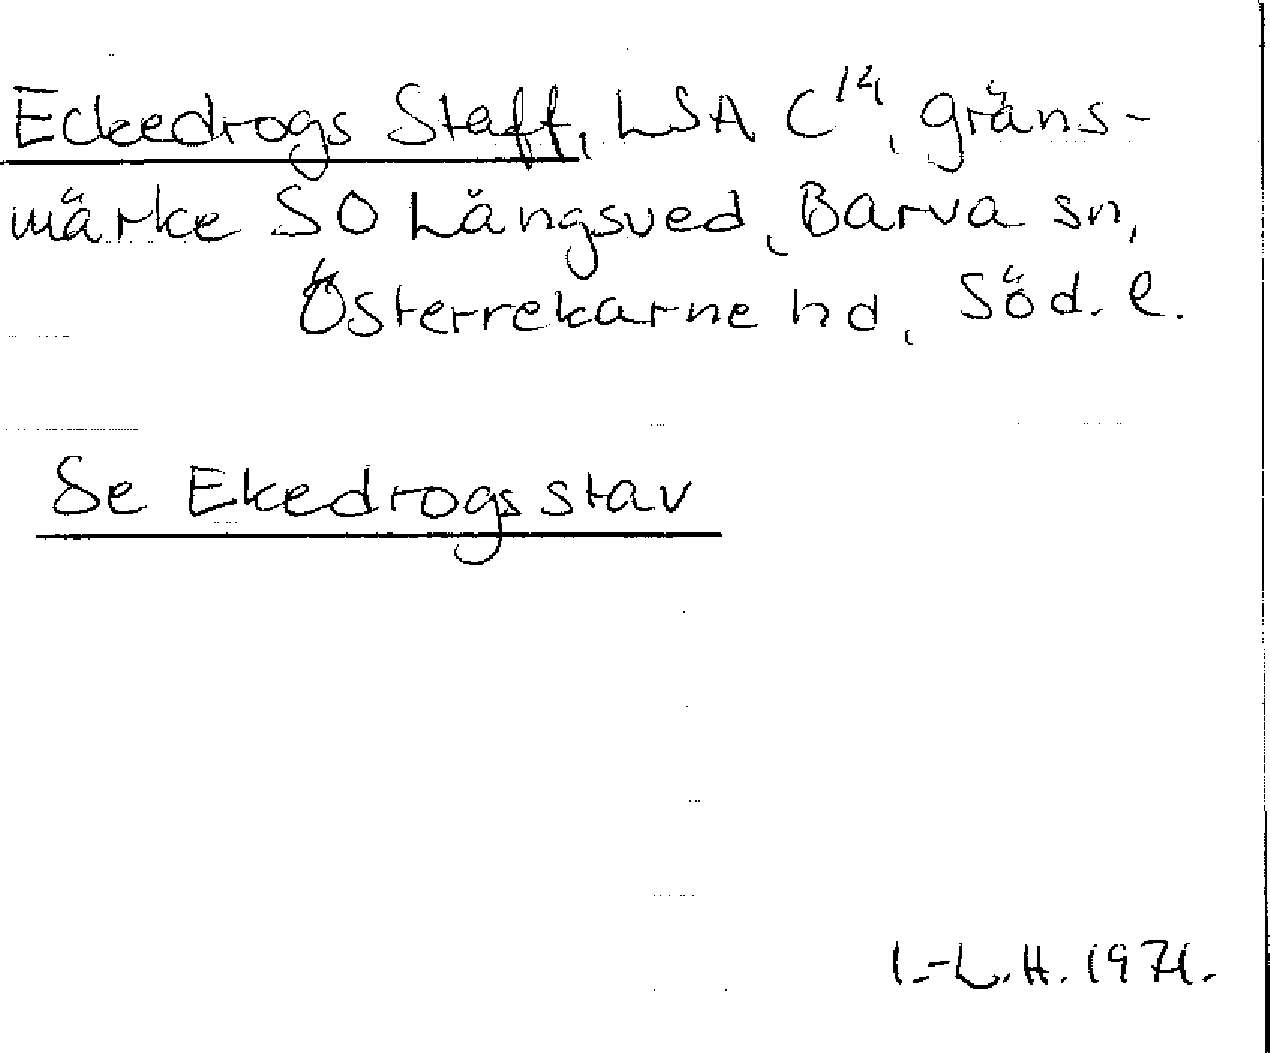 Eckedrogs Staff, LSA C¹⁴, gräns-
märke SO Långsved, Barva sn,
Österrekarne hd, Söd. l.
Se Ekedrogs stav
I.-L.H. 1971.